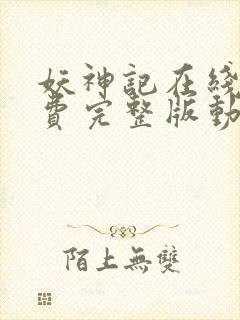 妖神記在綫
費完整版動
陌上無雙